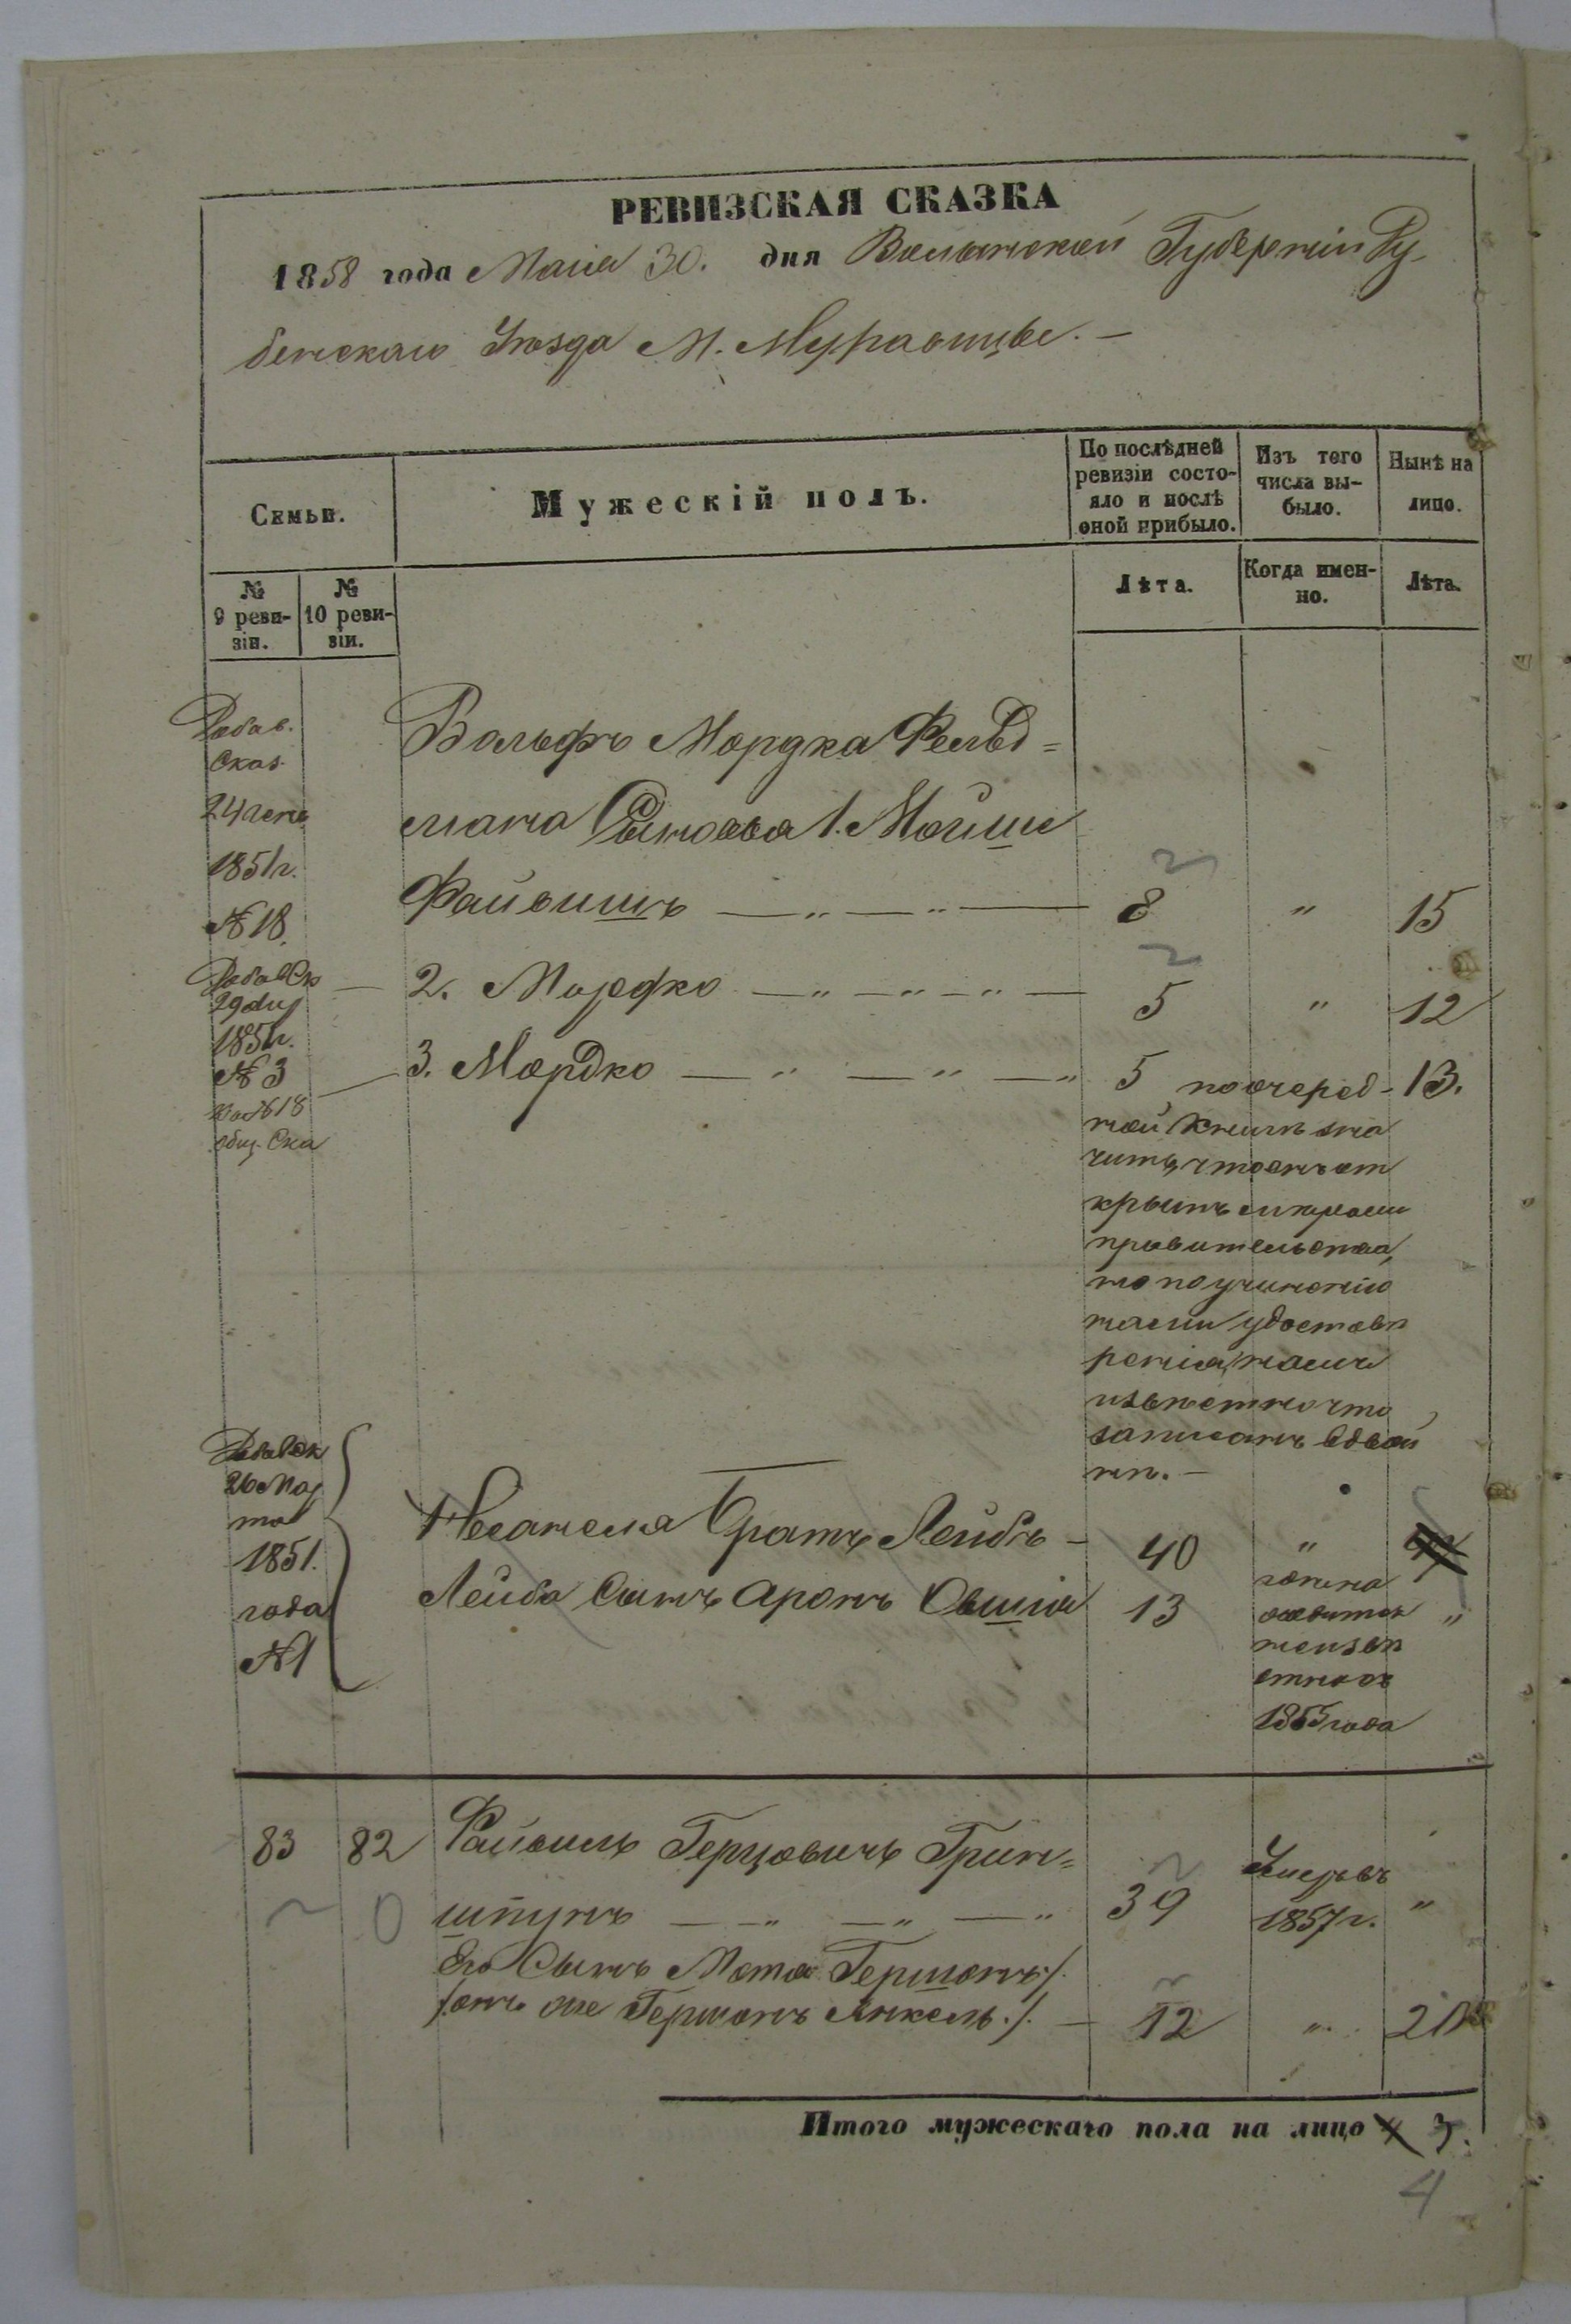 РЕВИЗСКАЯ СКАЗКА
1858 года Маія 30. дня Волынской Губерніи Ду-
бенскаго Уѣзда М. Муравицы. —
Семьи.
Мужескій полъ.
По послѣдней ревизіи состояло и послѣ оной прибыло.
Изъ того числа выбыло.
Нынѣ на лицо.
№ 9 ревизіи.
№ 10 ревизіи.
Лѣта.
Когда именно.
Лѣта.
Добав.
Сказ.
1851 г.
№ 18.
Вольфъ Мордка Фельд=
мана Сыновья 1. Мойше
Файвишъ — " — " — 8 " 15
Добав Ск
29
1851 г.
№ 3
2. Мордко — " — " — " — 5 " 12
№ 18
общ. Ска
3. Мордко — " — " — " 5 по очеред- 13.
ной книгѣ зна
читъ, что онъ от
крытъ мѣрами
правительства,
но по учиненію
нами удостовѣ
ренія, нами
извѣстно что
записанъ вдвой
нѣ. —
Добав Ск
26 Мар
та
1851.
года
№ 1
Братъ Лейбъ — 40 "
Лейба Сынъ Аронъ Овшія 13 "
неизвѣ
стно съ
1855 года
83 82 Файвель Герцовичъ Грин=
шпунъ — " — " — " 39 Умеръ въ 1857 г. "
0
Его Сынъ Мота Гершонъ /.
/ онъ же Гершонъ Янкель. /. — 12 " 21
Итого мужескаго пола на лицо 3.
4